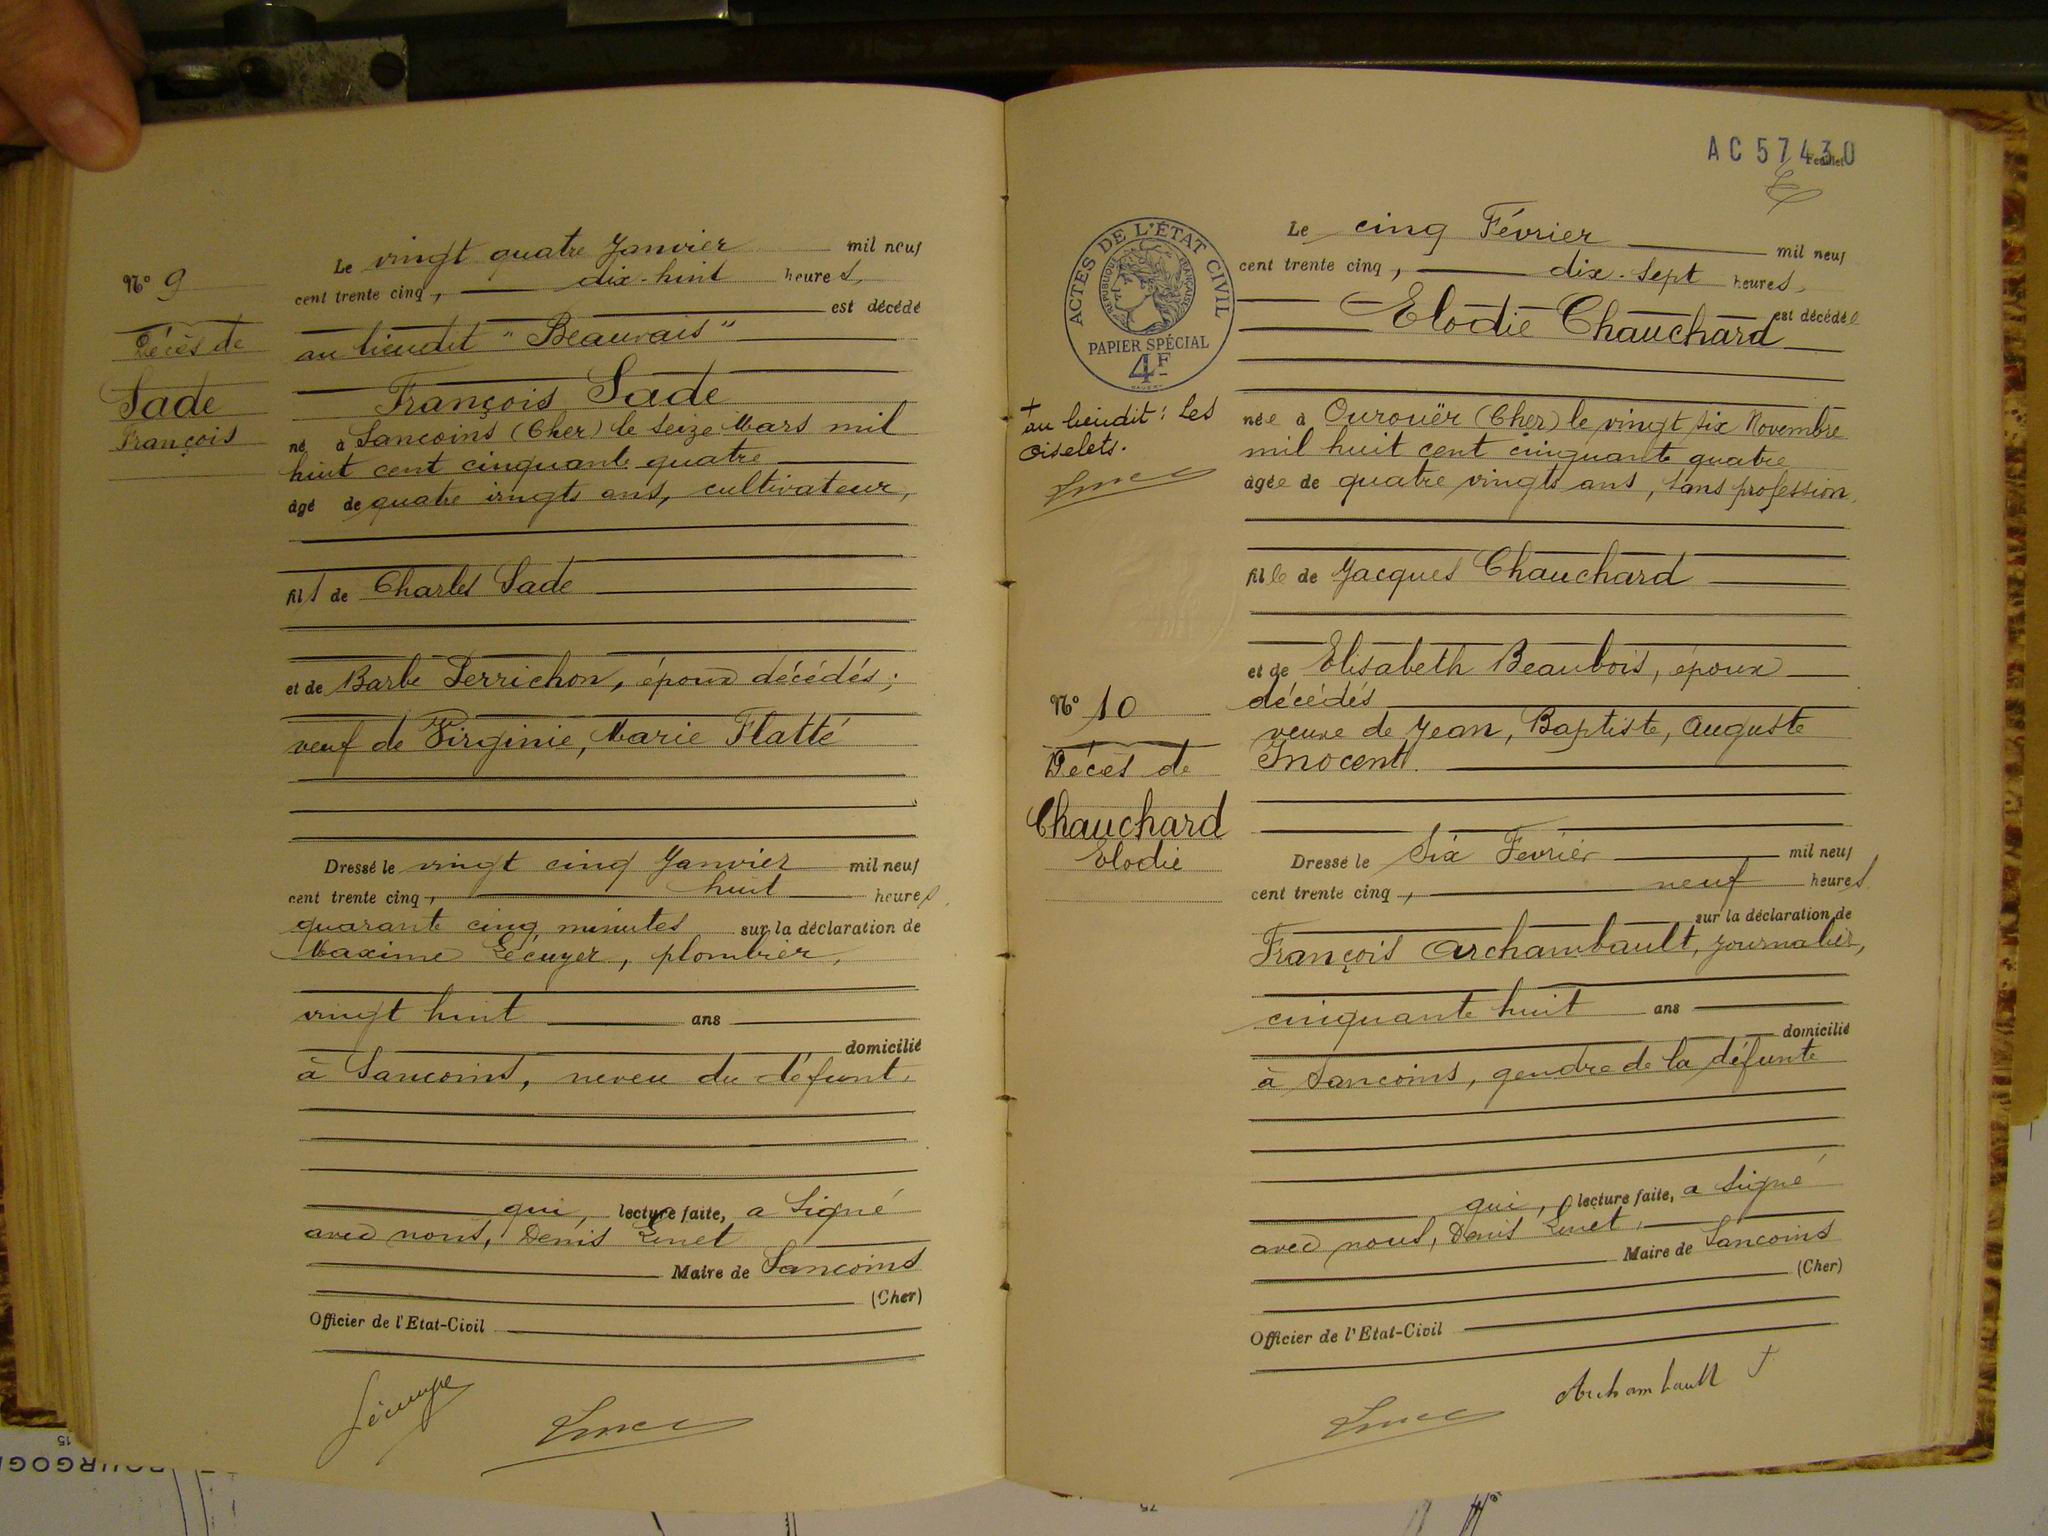 N° 9
Décès de
Sade
François
Le vingt quatre Janvier mil neuf
cent trente cinq, dix-huit heures,
est décédé
au lieudit "Beauvais"
François Sade
né à Sancoins (Cher) le seize Mars mil
huit cent cinquante quatre
âgé de quatre vingts ans, cultivateur,
fils de Charles Sade
et de Barbe Perrichon, époux décédés;
veuf de Virginie, Marie Flatté
Dressé le vingt cinq Janvier mil neuf
cent trente cinq, huit heures,
quarante cinq minutes sur la déclaration de
Maxime Lécuyer, plombier,
vingt huit ans
domicilié
à Sancoins, neveu du défunt.
qui, lecture faite, a signé
avec nous, Denis
Maire de Sancoins
(Cher)
Officier de l'Etat-Civil
AC 57430
Feuillet
ACTES DE L'ÉTAT CIVIL
RÉPUBLIQUE FRANÇAISE
PAPIER SPÉCIAL
4F
+
au lieudit: Les
Oiselets.
N° 10
Décès de
Chauchard
Elodie
Le cinq Février mil neuf
cent trente cinq, dix-sept heures,
est décédée
Elodie Chauchard
née à Ourouër (Cher) le vingt six Novembre
mil huit cent cinquante quatre
âgée de quatre vingts ans, sans profession,
fille de Jacques Chauchard
et de Elisabeth Beaubois, époux
décédés
veuve de Jean, Baptiste, Auguste
Inocent.
Dressé le Six Fevrier mil neuf
cent trente cinq, neuf heures,
sur la déclaration de
François Archambault, journalier,
cinquante huit ans
domicilié
à Sancoins, gendre de la défunte
qui, lecture faite, a signé
avec nous, Denis
Maire de Sancoins
(Cher)
Officier de l'Etat-Civil
Archambault